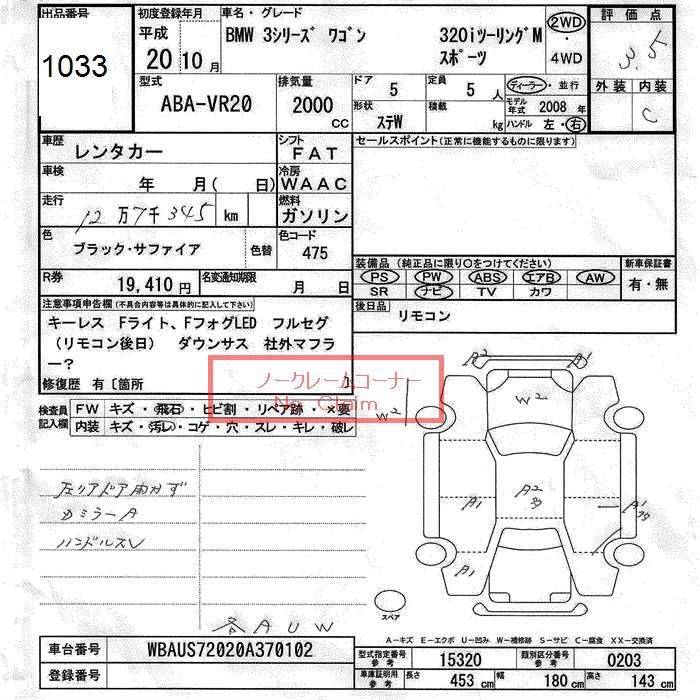 出品番号
1033
初度登録年月
平成
20 10 月
車名・グレード
BMW 3シリーズ ワゴン 320iツーリングM
スポーツ
2WD
・
4WD
評価点
3.5
外装 内装
C
型式
ABA-VR20
排気量
2000
CC
ドア 5
定員 5 人
形状 ステW
積載 kg
ディーラー・並行
モデル年式 2008 年
ハンドル 左・右
車歴
レンタカー
シフト
FAT
車検
年 月( 日)
冷房
WAAC
走行
12万7千345 km
燃料
ガソリン
色
ブラック・サファイア 色替
色コード
475
R券
19,410 円
名変通知期限
月 日
セールスポイント(正常に機能するものに限ります)
装備品 (純正品に限り〇をつけてください)
PS PW ABS エアB AW
SR ナビ TV カワ
新車保証書
有・無
後日品
リモコン
注意事項申告欄(不具合内容等は具体的に記入して下さい)
キーレス Fライト、FフォグLED フルセグ
(リモコン後日) ダウンサス 社外マフラ
ー?
修復歴 有〔箇所 〕
ノークレームコーナー
No Claim
検査員
記入欄
FW キズ・飛石・ヒビ割・リペア跡・×要
内装 キズ・汚レ・コゲ・穴・スレ・キレ・破レ
左リアドア開かず
Dミラー A
ハンドルスレ
各AUW
A2
A1
W2
W2
A2
A1
A1
A1
スペア
A-キズ E-エクボ U-凹み W-補修跡 S-サビ C-腐食 XX-交換済
車台番号 WBAUS72020A370102
登録番号
型式指定番号
参考
15320
類別区分番号
参考
0203
車庫証明用
参考
長さ 453 cm 幅 180 cm 高さ 143 cm